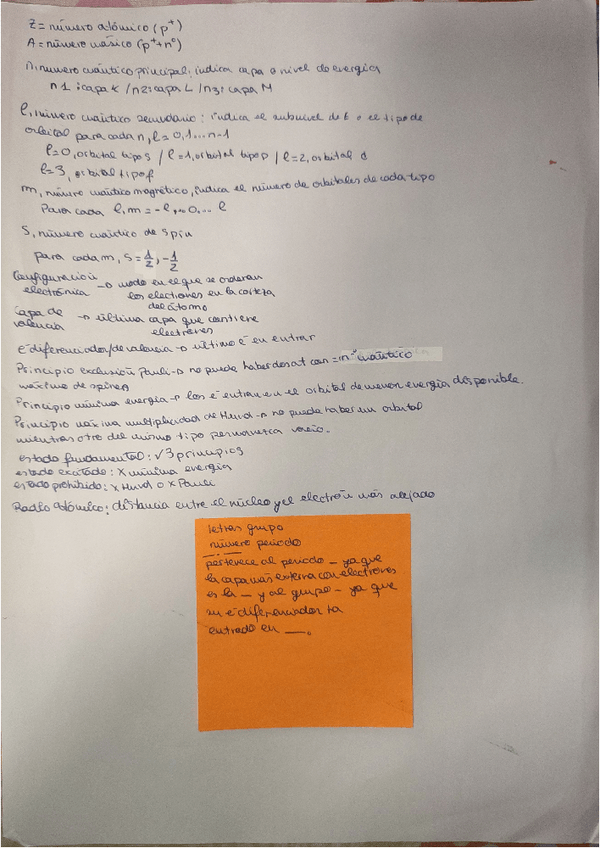 Z = número atómico (p⁺)
A = número másico (p⁺+n⁰)
n, número cuántico principal: indica capa o nivel de energía
n1: capa K / n2: capa L / n3: capa M
l, número cuántico secundario: indica el subnivel de E o el tipo de
orbital para cada n, l = 0, 1 ... n-1
l=0, orbital tipo s / l=1, orbital tipo p / l=2, orbital d
l=3, orbital tipo f
m, número cuántico magnético, indica el número de orbitales de cada tipo
Para cada l, m = -l, ... 0, ... l
S, número cuántico de spin
para cada m, S = 1/2, -1/2
Configuración
electrónica → modo en el que se ordenan
los electrones en la corteza
del átomo
Capa de
valencia → última capa que contiene
electrones
e⁻ diferenciador/de valencia → último e⁻ en entrar
Principio exclusión Pauli → no puede haber dos at con = nº cuántico
máximo de spines
Principio mínima energía → los e⁻ entran en el orbital de menor energía disponible.
Principio máxima multiplicidad de Hund → no puede haber un orbital
mientras otro del mismo tipo permanezca vacío.
estado fundamental: √3 principios
estado excitado: X mínima energía
estado prohibido: X Hund o X Pauli
Radio atómico: distancia entre el núcleo y el electrón más alejado
letras grupo
número periodo
pertenece al periodo _ ya que
la capa más externa con electrones
es la _ y al grupo _ ya que
su e⁻ diferenciador ha
entrado en __.